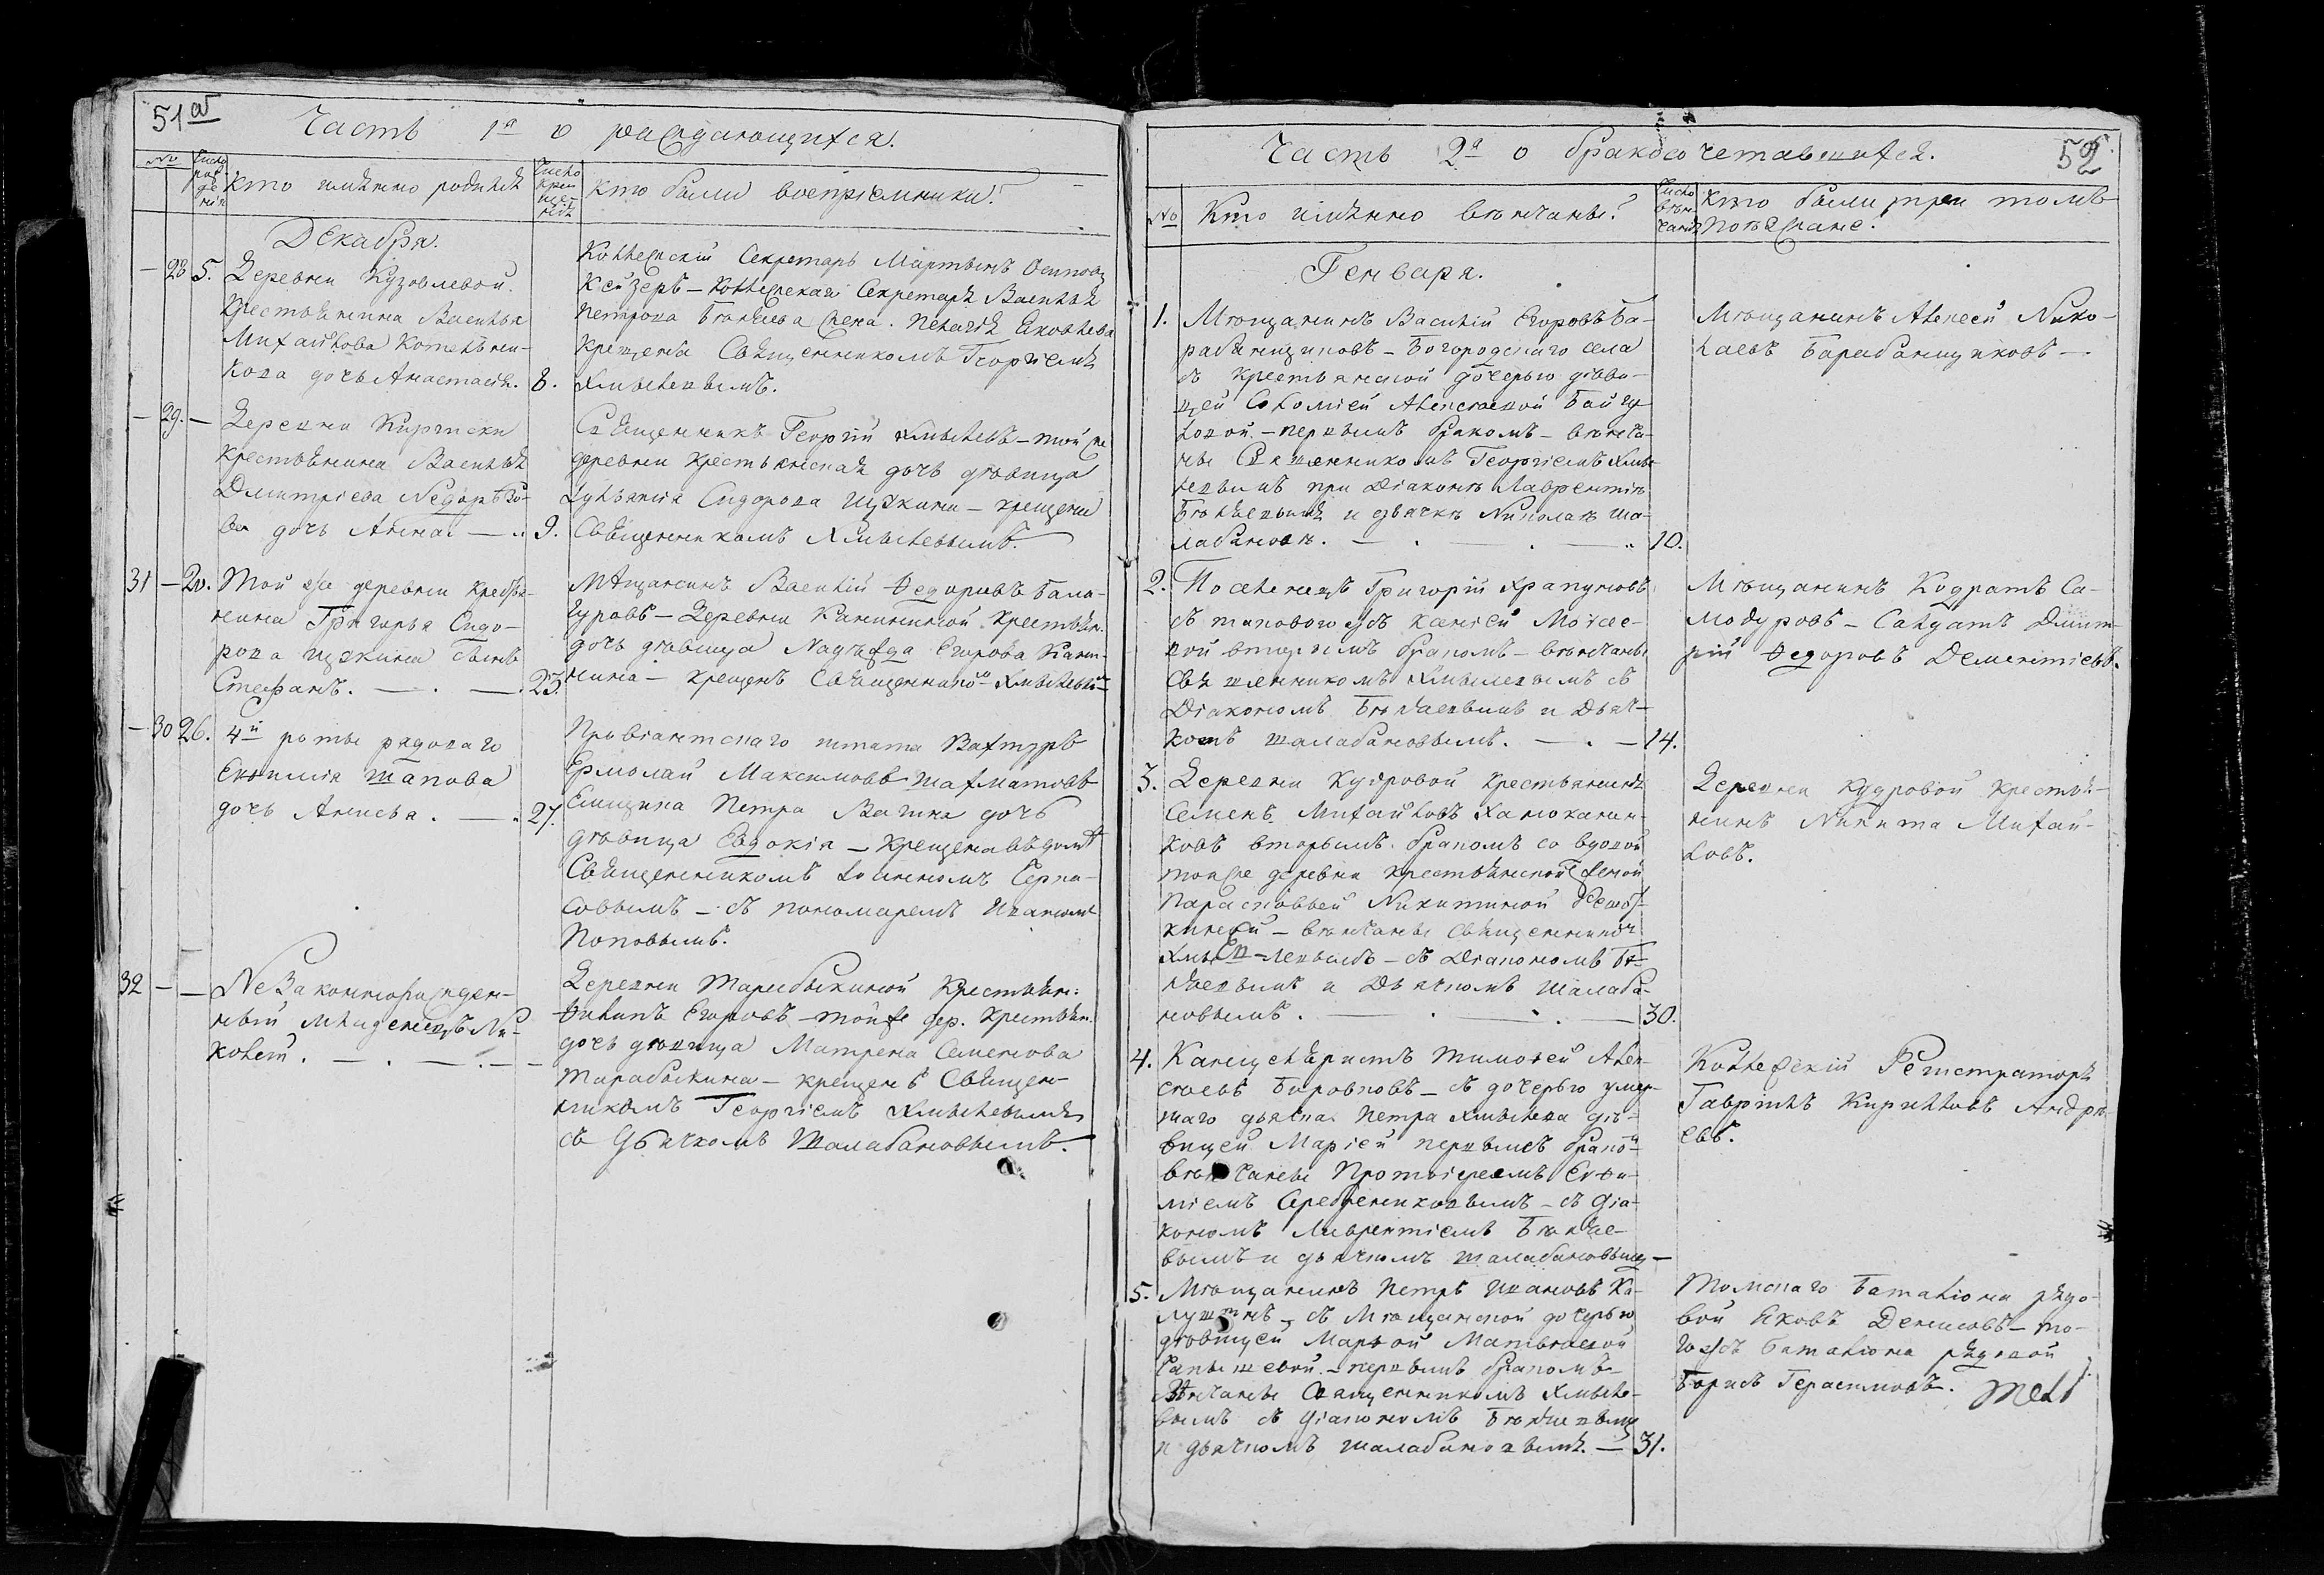 51а
Часть 1я о раждающихся.
№
Число рождения
Кто именно родился
Число крещенія
Кто были воспріемники?
Декабря.
28 5. Деревни Кузовлевой.
Крестьянина Василья
Михайлова
дочь Анастасія. 8.
Коллежскій Секретарь Мартынъ Осиповъ
Кейзеръ – Коллежскаго Секретаря Василья
Петрова Бѣляева жена Пелагія Яковлева
крещена Священникомъ Георгіемъ
Хмылевымъ.
29. – Деревни Киргиски
крестьянина Василья
Дмитріева Недорѣзо-
ва дочь Анна. — 9.
Священникъ Георгій Хмылевъ – той же
деревни крестьянская дочь дѣвица
Сидорова – крещена
Священникомъ Хмылевымъ.
31 – 20. Той же деревни крестья-
нина Григорья Сидо-
рова сынъ
Стефанъ. — 23.
Мѣщанинъ Василій Ѳедоровъ Бала-
гуровъ – Деревни Канининой крестьян.
дочь дѣвица Надѣжда Егорова Кани-
нина – крещенъ Священникомъ Хмылевымъ
– 30 26. 4й роты рядоваго
Шапова
дочь Анисья. — 27.
Провіантскаго штата Вахтеръ
Ермолай Максимовъ Шахматовъ
Петра дочь
дѣвица Евдокія – крещена въ дому
Священникомъ Іоанномъ Серка-
совымъ – съ пономаремъ Иваномъ
Поповымъ.
32 – – Незаконнорожден-
ный младенецъ Ни-
колай. —
Деревни Тарабыкиной Крестьян:
Филипъ Егоровъ – той же дер. крестьян.
дочь дѣвица Матрена Семенова
Тарабыкина – крещенъ Священ-
никомъ Георгіемъ Хмылевымъ
съ Дьячкомъ Шалабановымъ.
Часть 2я о бракосочетавшихся.
52
№
Кто именно вѣнчаны?
Число вѣнчанія
Кто были при томъ
Поѣзжане.
Генваря.
1. Мѣщанинъ Василій Егоровъ Ба-
рабанщиковъ – Богородскаго села
съ крестьянской дочерью дѣви-
цей Соломіей Алексѣевой Байгу-
ловой – первымъ бракомъ – вѣнча-
ны Священникомъ Георгіемъ Хмы-
левымъ при Діаконѣ Лаврентіѣ
Бѣляевымъ и дьячкѣ Николаѣ Ша-
лабановѣ. — 10.
Мѣщанинъ Алексей Нико-
лаевъ Барабанщиковъ —
2. Поселенецъ Григорій Храпуновъ
съ таковою жъ Ксеніей Моисе-
вой вторымъ бракомъ – вѣнчаны
Священникомъ Хмылевымъ съ
Діакономъ Бѣляевымъ и Дьяч-
комъ Шалабановымъ. — 14.
Мѣщанинъ Кодратъ Са-
модуровъ – Салдатъ Дмит-
рій Ѳедоровъ Дементіевъ.
3. Деревни Кудровой крестьянинъ
Семенъ Михайловъ
вторымъ бракомъ со вдовой
той же деревни крестьянской женой
Парасковьей Никитиной
– вѣнчаны Священникомъ
Хмылевымъ – съ Діакономъ Бѣ-
ляевымъ и Дьячкомъ Шалаба-
новымъ. — 30.
Деревни Кудровой крестья-
нинъ Никита Михай-
ловъ.
4. Канцеляристъ Тимофей Алек-
сѣевъ – съ дочерью умер-
шаго дьячка Петра Хмылева дѣ-
вицей Маріей первымъ бракомъ
вѣнчаны Протоіереемъ Евфи-
міемъ Серебренниковымъ – съ Діа-
кономъ Лаврентіемъ Бѣляе-
вымъ и дьячкомъ Шалабановымъ —
Коллежскій Регистраторъ
Гаврилъ Кириловъ Андре-
евъ.
5. Мѣщанинъ Петръ Ивановъ Ка-
лушинъ – съ Мѣщанской дочерью
дѣвицей Марѳой Матвѣевой
– первымъ бракомъ –
вѣнчаны Священникомъ Хмыле-
вымъ съ Діакономъ Бѣляевымъ
и дьячкомъ Шалабановымъ. — 31.
Томскаго Баталіона рядо-
вой Яковъ Денисовъ – то-
го жъ Баталіона рядовой
Борисъ Герасимовъ.